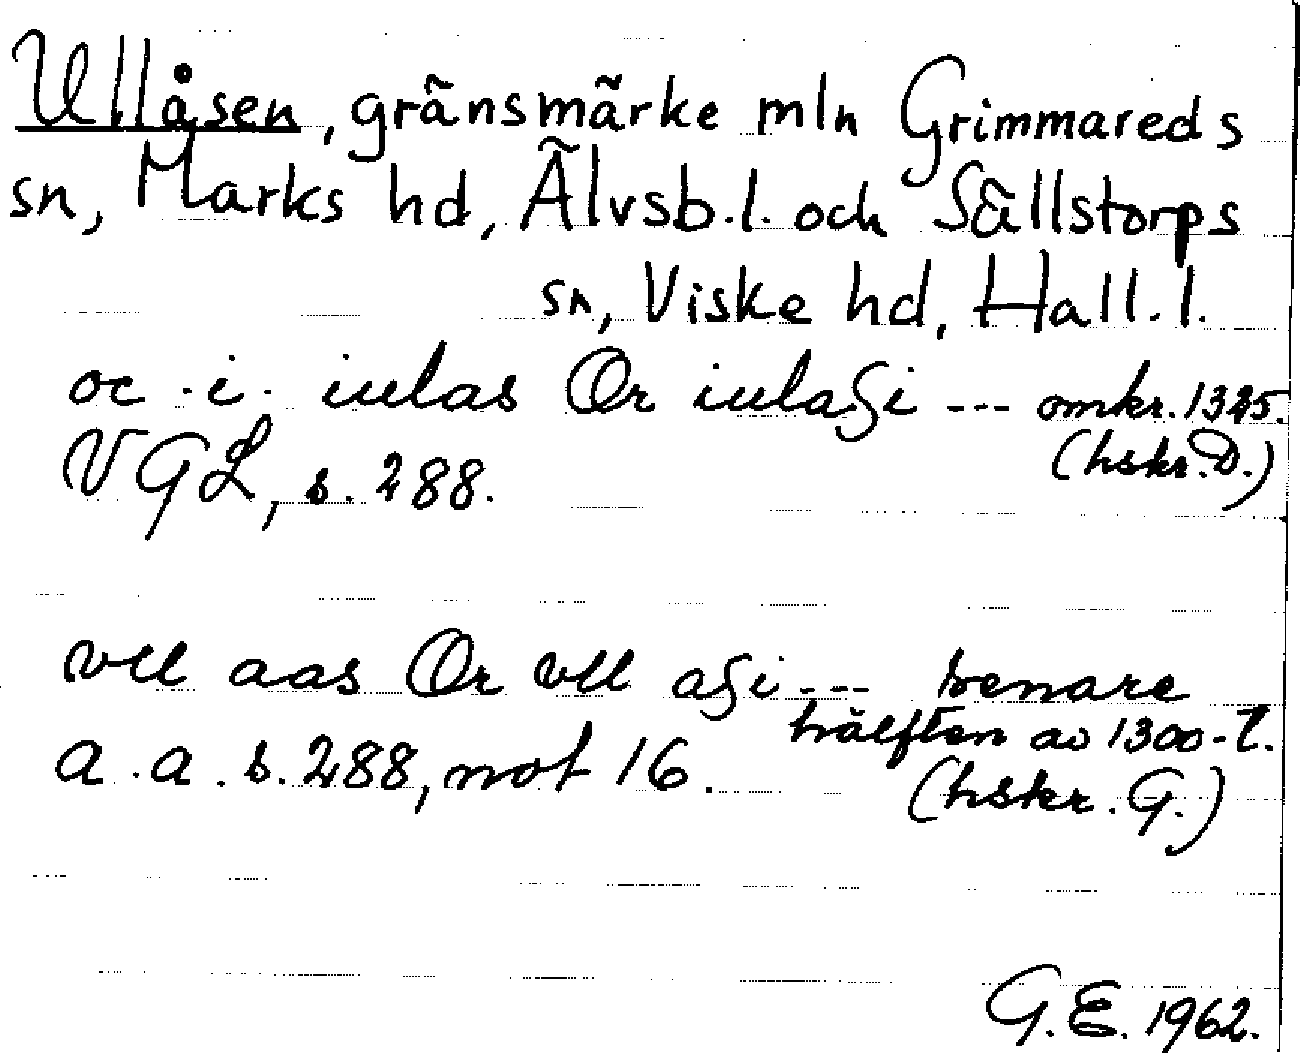 Ullåsen, gränsmärke mln Grimmareds
sn, Marks hd, Älvsb. l. och Sällstorps
sn, Viske hd, Hall. l.
oc · i · iulas Or iulaʒi --- omkr. 1325.
VGL, s. 288. (hskr. D.)
vll aas Or vll aʒi --- senare
hälften av 1300-t.
a. a. s. 288, not 16. (hskr. G.)
G. E. 1962.